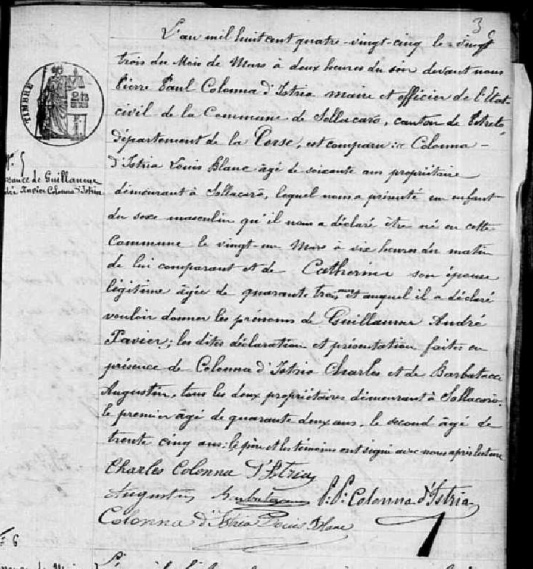 3
L'an mil huit cent quatre-vingt-cinq le vingt
trois du Mois de Mars à deux heures du soir devant nous
Pierre Paul Colonna d'Istria maire et officier de l'Etat
civil de la Commune de Sollacaro, canton de Petreto
département de la Corse, est comparu Colonna-
d'Istria Louis Blanc âgé de soixante ans propriétaire
demeurant à Sollacaro, lequel nous a présenté un enfant
du sexe masculin qu'il nous a déclaré être né en cette
Commune le vingt-un Mars à dix heures du matin
de lui comparant et de Catherine son épouse
légitime âgée de quarante trois ans et auquel il a déclaré
vouloir donner les prénoms de Guillaume André
Xavier; les dites déclaration et présentation faites en
présence de Colonna d'Istria Charles et de Barbatucci
Augustin, tous les deux propriétaires demeurant à Sollacaro
le premier âgé de quarante deux ans, le second âgé de
trente cinq ans. Le père et les témoins ont signé avec nous après lecture
Charles Colonna D'Istria
Augustin P. P. Colonna d'Istria
Colonna d'Istria Louis Blanc
TIMBRE
N° 5
Naissance de Guillaume
André Xavier Colonna d'Istria
N° 6